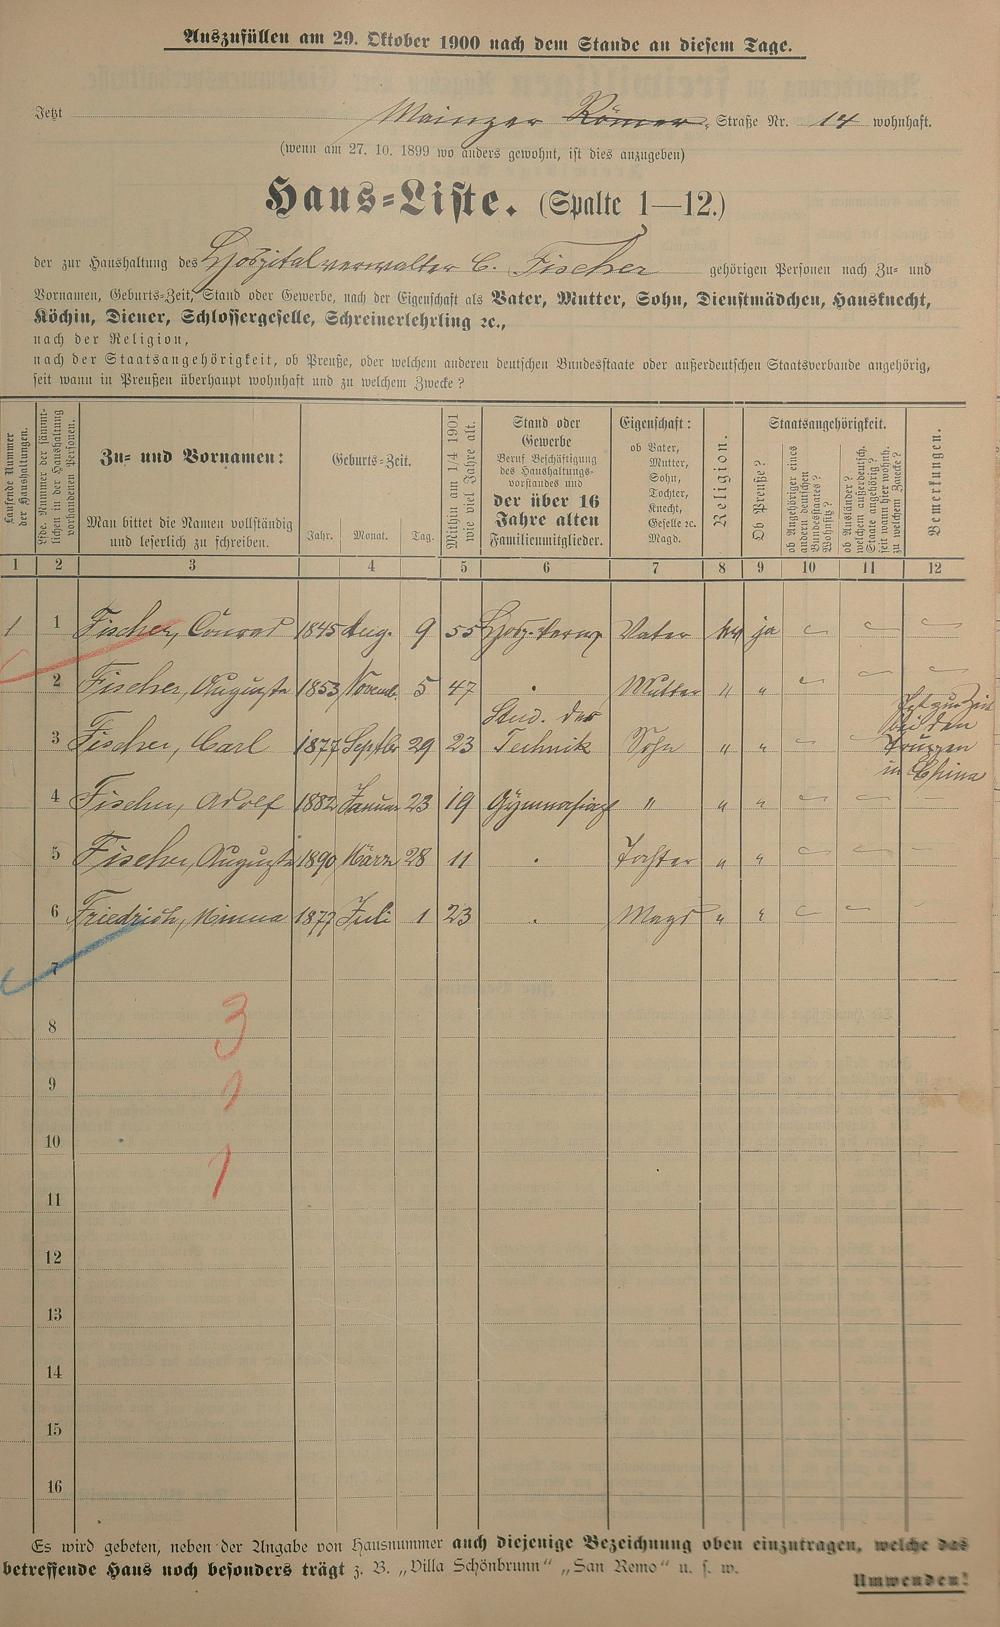 Auszufüllen am 29. Oktober 1900 nach dem Stande an diesem Tage.
Jetzt Mainzer Römer- Straße Nr. 14 wohnhaft.
(wenn am 27. 10. 1899 wo anders gewohnt, ist dies anzugeben)
Haus-Liste. (Spalte 1—12.)
der zur Haushaltung des Hospitalverwalter C. Fischer gehörigen Personen nach Zu- und
Vornamen, Geburts-Zeit, Stand oder Gewerbe, nach der Eigenschaft als Vater, Mutter, Sohn, Dienstmädchen, Hausknecht,
Köchin, Diener, Schlossergeselle, Schreinerlehrling ꝛc.,
nach der Religion,
nach der Staatsangehörigkeit, ob Preuße, oder welchem anderen deutschen Bundesstaate oder außerdeutschen Staatsverbande angehörig,
seit wann in Preußen überhaupt wohnhaft und zu welchem Zwecke?
Laufende Nummer
der Haushaltungen.
Lfde. Nummer der sämmt-
lichen in der Haushaltung
vorhandenen Personen.
Zu- und Vornamen:
Man bittet die Namen vollständig
und leserlich zu schreiben.
Geburts-Zeit.
Jahr. Monat. Tag.
Mithin am 1/4 1901
wie viel Jahre alt.
Stand oder
Gewerbe
Beruf Beschäftigung
des Haushaltungs-
vorstandes und
der über 16
Jahre alten
Familienmitglieder.
Eigenschaft:
ob Vater,
Mutter,
Sohn,
Tochter,
Knecht,
Geselle ꝛc.
Magd.
Religion.
Staatsangehörigkeit.
Ob Preuße?
ob Angehöriger eines
andern deutschen
Bundesstaates?
Wohnsitz?
ob Ausländer?
welchem außerdeutsch.
Staate angehörig?
seit wann hier wohnh.
zu welchem Zwecke?
Bemerkungen.
1 2 3 4 5 6 7 8 9 10 11 12
1 1 Fischer, Conrad 1845 Aug. 9 55 Hosp. Verw. Vater ja — — —
2 Fischer, Auguste 1853 Novemb. 5 47 . Mutter " " — — —
3 Fischer, Carl 1877 Septbr 29 23 Stud. der Technik Sohn " " — — Jetzt zur Zeit bei den Truppen in China
4 Fischer, Adolf 1882 Januar 23 19 Gymnasiast " " " — — —
5 Fischer, Auguste 1890 März 28 11 . Tochter " " — — —
6 Friedrich, Minna 1877 Juli 1 23 . Magd " " — —
7
8
3
9
1
10
1
11
12
13
14
15
16
Es wird gebeten, neben der Angabe von Hausnummer auch diejenige Bezeichnung oben einzutragen, welche das
betreffende Haus noch besonders trägt z. B. „Villa Schönbrunn“ „San Remo“ u. s. w.
Umwenden!